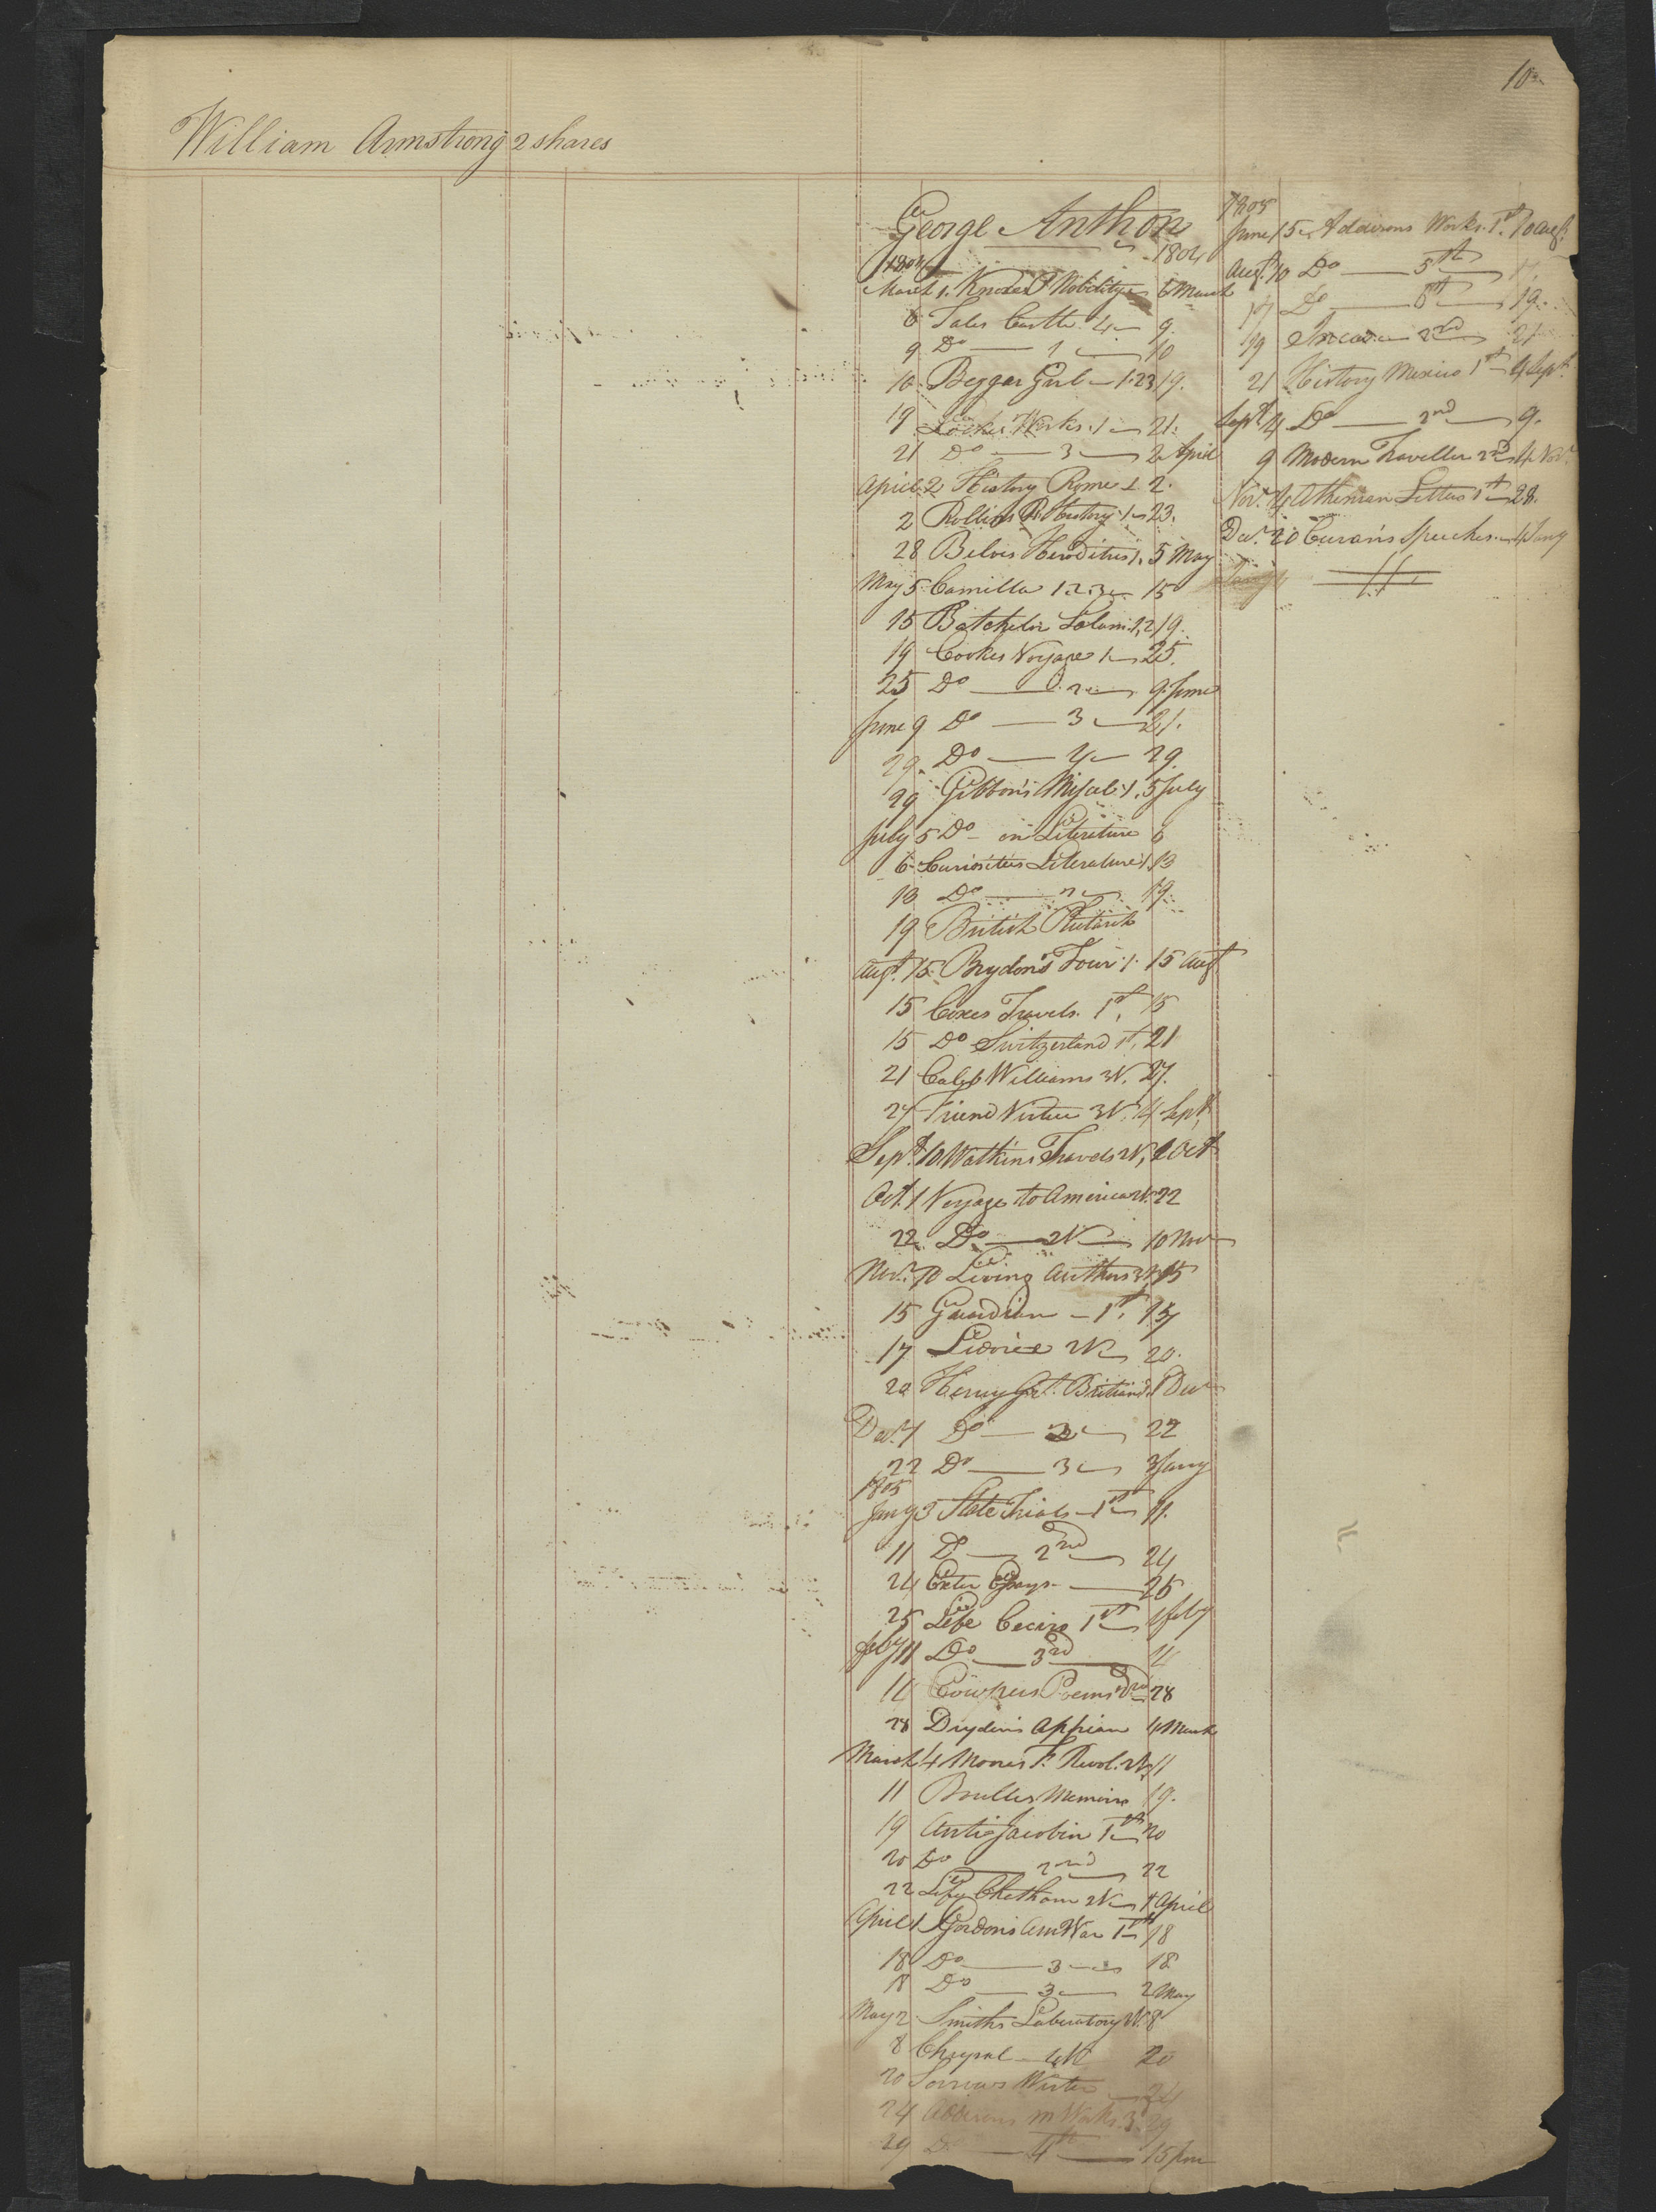 10
William Armstrong 2 shares
George Anthon
1804 1804
March 1. Nobility 6 March
6 Tales Castle 4 9.
9 Do 1 10
10 Beggar Girl 1.2.3 19.
19 Lockes Works 1 21.
21 Do 3 2 April
April 2 History Rome 1 2.
2 Rollins History 1 23.
28 Beloes Heroditus 1. 5 May
May 5 Camilla 1.2.3 15
15 Batchelor 1,2 19.
19 Cookes Voyage 1 25.
25 Do 2 9 June
June 9 Do 3 21.
29. Do 4 29.
29 Gibbon's Miscel: 1. 5 July
July 5 Do on Literature 6
6 Curiosities Literature 1. 13
13 Do 2 19.
19 British Plutarch
Augt. 15. Brydon's Tour 1. 15 Augt
15 Coxes Travels. 1st. 15
15 Do Switzerland 1st. 21
21 Caleb Williams 27.
27 Friend Virtue 3V. 4 Sept
Sept. 10 Watkins Travels 2V, 1 Oct
Oct. 1 Voyage to America 22
22. Do 2V 10 Nov
Nov. 10 Living Authors 15
15 Guardian 1st. 17
17 20.
20 Henry Grt. Britian 1 Dec
Dec. 1 Do 2 22
22 Do 3 3 Jany
1805
Jany 3 State Trials 1st 11.
11 Do 2nd 24
24 Exeter Essays 25
25 Life Cecero 1st 1 Feby
Feby 11 Do 3rd 14
14 Cowpers Poems 28
28 Dryden's Appian 4 March
March 4 Moores F. Revol. 2V. 11
11 Memoirs 19.
19 Anti Jacobin 1st 20
20 Do 2nd 22
22 Life Chatham 2V 1 April
April 1 Gordon's Am War 1st 18
18 Do 3 18
18 Do 3 2 May
May 2. Smiths Laboratory 8
8 Chrysal 4V 20
20 Sorrows Werter 24
24 Addisons Works 3. 29
29 Do 4th 15 June
1805
June 15 Addisons Works 1st. 10 Augt.
Augt. 10 Do 5th 17.
17 Do 6th 19.
19 2nd 21
21 History Mexico 1st 4 Sept.
Sept. 4 Do 2nd 9.
9 Modern Traveller 2nd 4 Nov.
Nov. 4 Athenian Letters 1st 28.
Dec. 20 Curan's Speeches 1 Jany